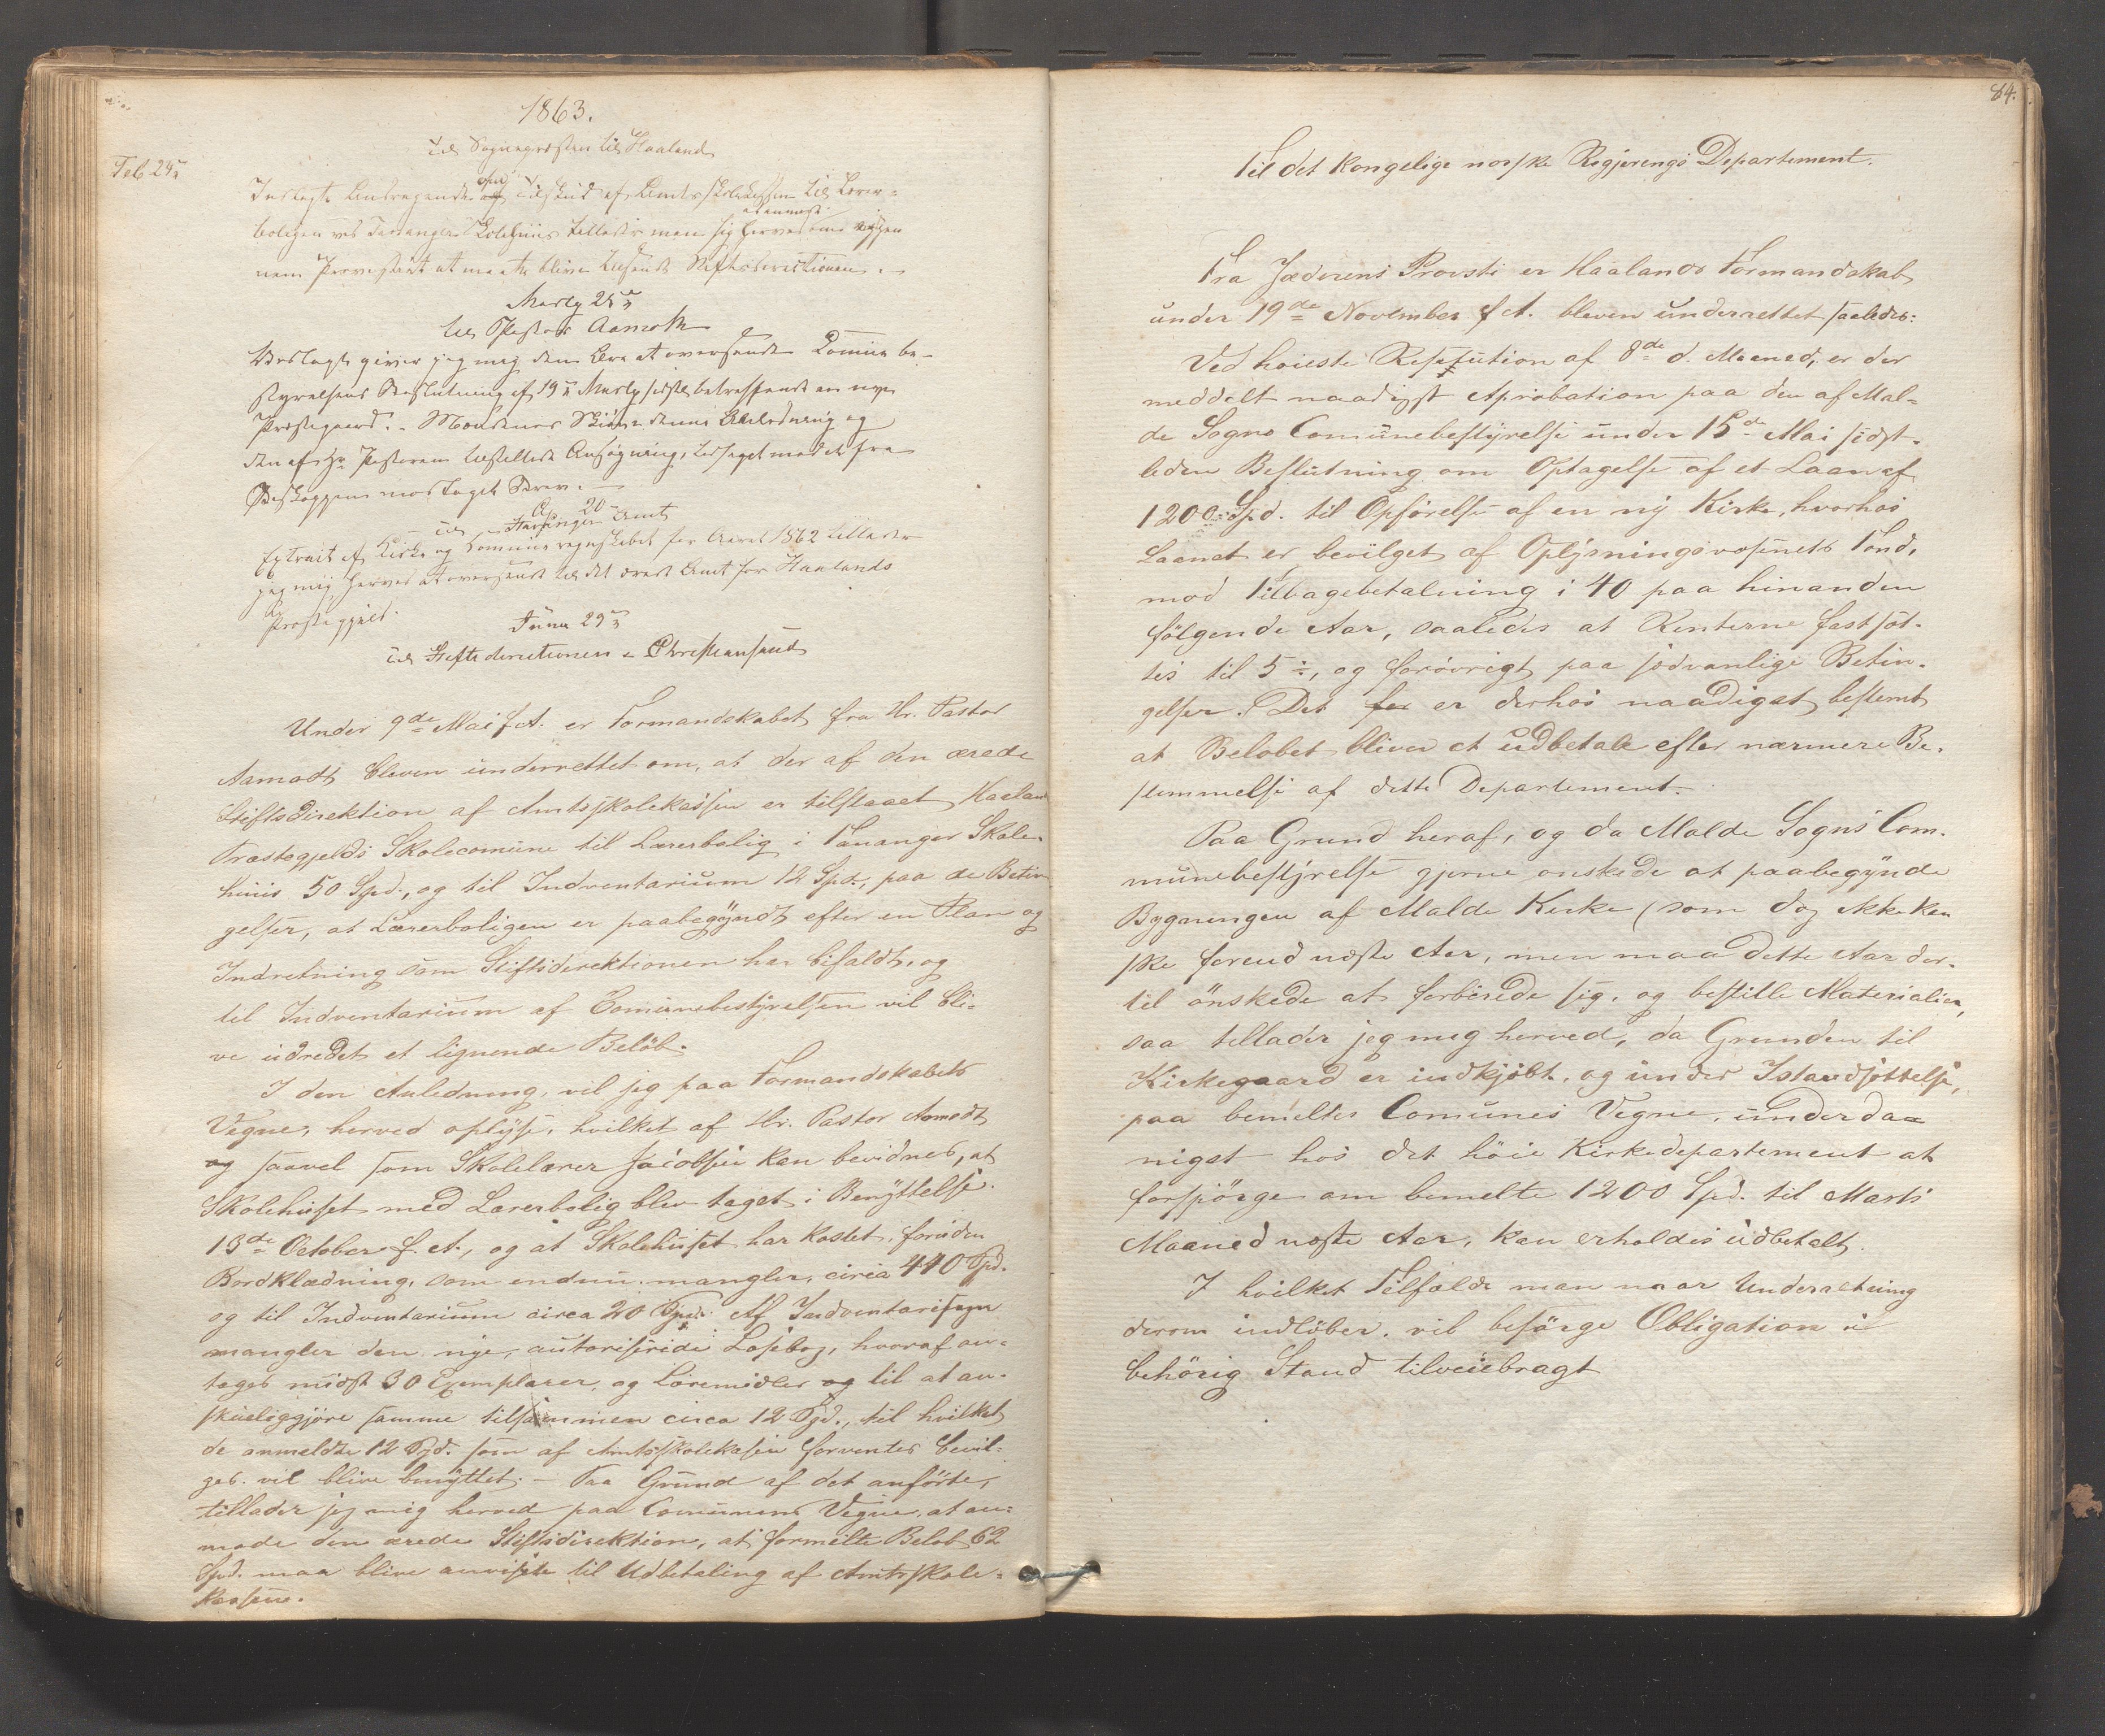 1863.
Til Sognepresten til Haaland
Feb 24de
Indlagte Andragende om Tilskud af Amtsskolekassen til Lærer-
boligen ved Tananger Skolehuus tillader man sig herved
Provstiet at maatte blive tilsendt Stiftsdirectionen.
Marty 25de
til Pastor Aamodt
Vedlagt giver jeg mig den Ære at oversende Comunebe-
styrelsens Beslutning af 19de Marty sidstl betræffende en nye
Præstegaard.
den af Hr. Pastoren Ansøgning, ledsaget med det fra
Biskoppen modtaget Brev.
Ap 20
Til Stavanger Amt
Extract af Kirke og Commune regnskabet for Aaret 1862 tillader
jeg mig herved at oversende til det ærede Amt for Haalands
Præstegjeld.
Juni 29de
Til Stiftsdirectionen i Christiansand
Under 9de Mai f. A. er Formandskabet fra Hr. Pastor
Aamodt bleven underrettet om, at der af den ærede
Stiftsdirektion af Amtsskolekassen er tilstaaet Haaland
Præstegjelds Skolecomune til Lærerbolig i Tananger Skole-
huus 50 Spd., og til Indventarium 12 Spd., paa de Betin
gelser, at Lærerboligen er paabegyndt efter en Plan og
Indretning som Stiftsdirektionen har bifaldt, og
til Indventarium af Comunebestyrelsen vil bli-
ve udredet et lignende Beløb.
I den Anledning, vil jeg paa Formandskabets
Vegne, herved oplyse, hvilket af Hr. Pastor Aamodt
og saavel som Skolelærer Jacobsen kan bevidnes, at
Skolehuset med Lærerbolig blev taget i Benyttelse
13de October f. A., og at Skolehuset har kostet, foruden
Bordklædning, som endnu mangler, circa 440 Spd.
og til Indventarium circa 20 Spd. Af Indventariesager
mangler den nye, autoriserede Læsebog, hvoraf an-
tages mindst 30 Exemplarer, og Læremidler og til at an-
skueliggjøre samme tilsammen circa 12 Spd., til hvilket
de anmeldte 12 Spd. som af Amtsskolekassen forventes bevil-
ges vil blive benyttet. – Paa Grund af det anførte,
tillader jeg mig herved paa Comunens Vegne, at an-
mode den ærede Stiftsdirektion, at formelte Beløb 62
Spd. maa blive anviste til Udbetaling af Amtsskole-
kassene.
84.
Til det kongelige norske Regjerings Departement.
Fra Jæderens Provsti er Haalands Formandskab
under 19de November f A. bleven underrettet saaledes:
Ved høieste Resolution af 8de d. Maaned, er der
meddelt naadigst Aprobation paa den af Mal-
de Sogns Comunebestyrelse under 15de Mai sidst-
leden Beslutning om Optagelse af et Laan af
1200 Spd. til Opførelse af en ny Kirke, hvorhos
Laanet er bevilget af Oplysningsvæsnets Fond,
mod Tilbagebetalning i 40 paa hinanden
følgende Aar, saaledes at Renterne fastsæt-
tes til 5 %, og forøvrigt paa sædvanlige Betin-
gelser. Det for er derhos naadigst bestemt
at Beløbet bliver et udbetale efter nærmere Be-
stemmelse af dette Departement.
Paa Grund heraf, og da Malde Sogns Com-
munebestyrelse gjerne ønskede at paabegynde
Bygningen af Malde Kirke (som dog ikke kan
ske forend næste Aar, men maa dette Aar der-
til ønskede at forberede sig, og bestille Materialier,
saa tillader jeg mig herved, da Grunden til
Kirkegaard er indkjøbt, og under Istandsættelse,
paa bemelte Comunes Vegne, underdaa
nigst hos det høie Kirkedepartement at
forspørge om bemelte 1200 Spd. til Marts
Maaned næste Aar, kan erholdes udbetalt.
I hvilket Tilfælde man naar Underretning
derom indløber, vil besørge Obligation i
behørig Stand tilveiebragt